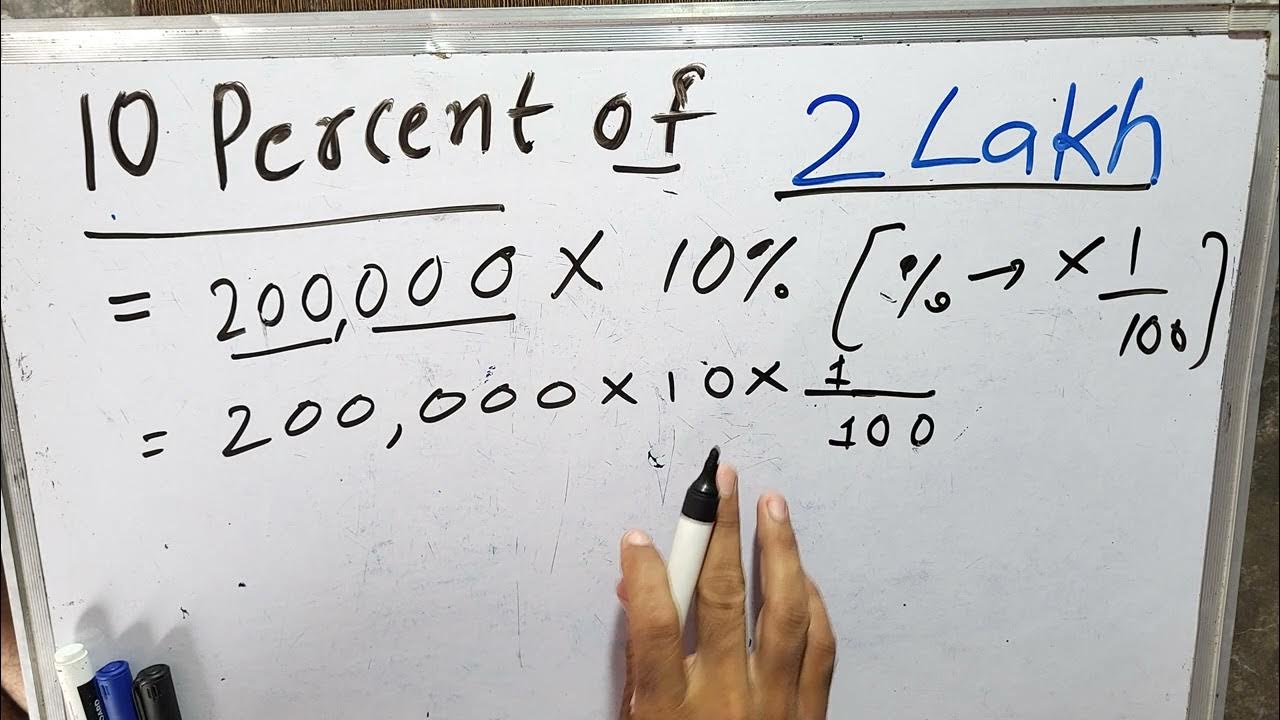 10 Percent of 2 Lakh
= 200,000 × 10% [% → × 1/100]
= 200,000 × 10 × 1/100